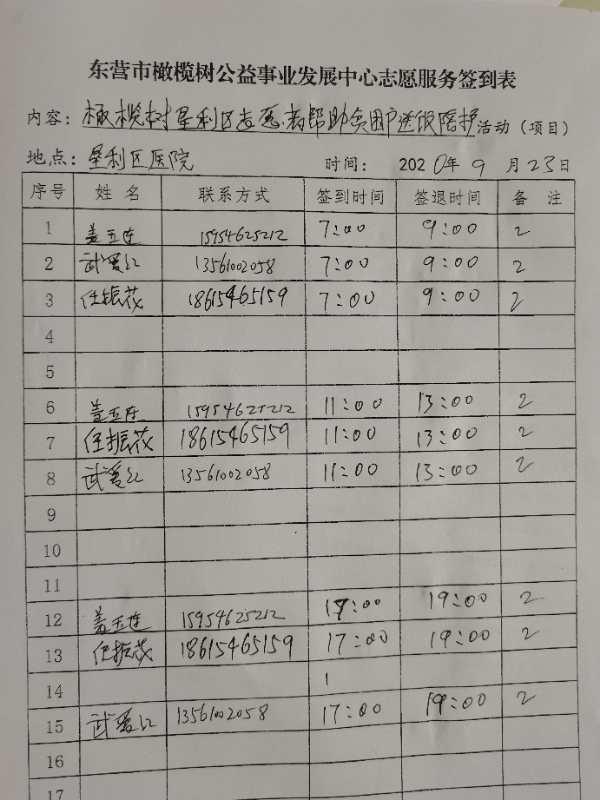 东营市橄榄树公益事业发展中心志愿服务签到表
内容：橄榄树垦利区志愿者帮助贫困户送饭陪护活动（项目）
地点：垦利区医院 时间：2020年9月23日
序号 姓名 联系方式 签到时间 签退时间 备注
1 盖玉连 15954625212 7:00 9:00 2
2 武爱红 13561002058 7:00 9:00 2
3 任振花 18615465159 7:00 9:00 2
4
5
6 盖玉连 15954625212 11:00 13:00 2
7 任振花 18615465159 11:00 13:00 2
8 武爱红 13561002058 11:00 13:00 2
9
10
11
12 盖玉连 15954625212 17:00 19:00 2
13 任振花 18615465159 17:00 19:00 2
14
15 武爱红 13561002058 17:00 19:00 2
16
17